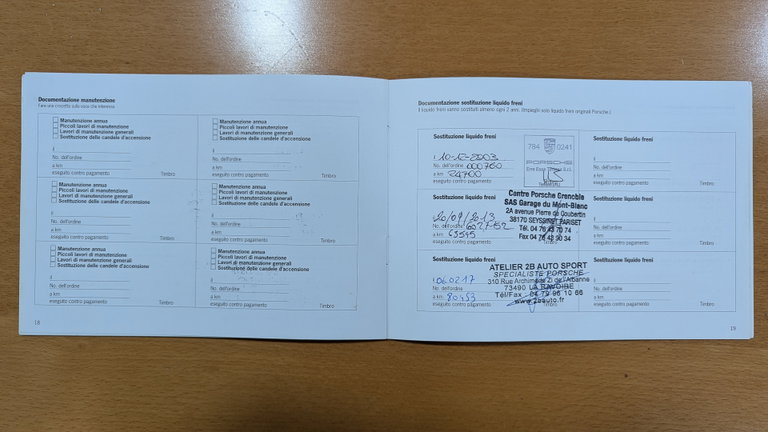 Documentazione manutenzione
Fare una crocetta sulla voce che interessa
Manutenzione annua
Piccoli lavori di manutenzione
Lavori di manutenzione generali
Sostituzione delle candele d'accensione
il
No. dell'ordine
a km
eseguito contro pagamento Timbro
Manutenzione annua
Piccoli lavori di manutenzione
Lavori di manutenzione generali
Sostituzione delle candele d'accensione
il
No. dell'ordine
a km
eseguito contro pagamento Timbro
Manutenzione annua
Piccoli lavori di manutenzione
Lavori di manutenzione generali
Sostituzione delle candele d'accensione
il
No. dell'ordine
a km
eseguito contro pagamento Timbro
Manutenzione annua
Piccoli lavori di manutenzione
Lavori di manutenzione generali
Sostituzione delle candele d'accensione
il
No. dell'ordine
a km
eseguito contro pagamento Timbro
Manutenzione annua
Piccoli lavori di manutenzione
Lavori di manutenzione generali
Sostituzione delle candele d'accensione
il
No. dell'ordine
a km
eseguito contro pagamento Timbro
Manutenzione annua
Piccoli lavori di manutenzione
Lavori di manutenzione generali
Sostituzione delle candele d'accensione
il
No. dell'ordine
a km
eseguito contro pagamento Timbro
18
Documentazione sostituzione liquido freni
Il liquido freni vanno sostituiti almeno ogni 2 anni. (Impieghi solo liquido freni originali Porsche.)
Sostituzione liquido freni
il 10-12-2003
No. dell'ordine 000760
a km 24700
eseguito contro pagamento
784 0241
PORSCHE
Sostituzione liquido freni
il
No. dell'ordine
a km
eseguito contro pagamento Timbro
Sostituzione liquido freni
20/09/2013
No. dell'ordine 602752
a km 63545
eseguito contro pagamento
Centre Porsche Grenoble
SAS Garage du Mont-Blanc
2A avenue Pierre de Coubertin
38170 SEYSSINET PARISET
Tél. 04 76 43 70 74
Fax 04 76 43 90 34
Sostituzione liquido freni
il
No. dell'ordine
a km
eseguito contro pagamento Timbro
Sostituzione liquido freni
il 060217
No. dell'ordine
a km 80453
eseguito contro pagamento
ATELIER 2B AUTO SPORT
SPECIALISTE PORSCHE
310 Rue Archimède Zi de l'Albanne
73490 LA RAVOIRE
Tél/Fax 04 79 96 10 66
www.2bauto.fr
Sostituzione liquido freni
il
No. dell'ordine
a km
eseguito contro pagamento Timbro
19